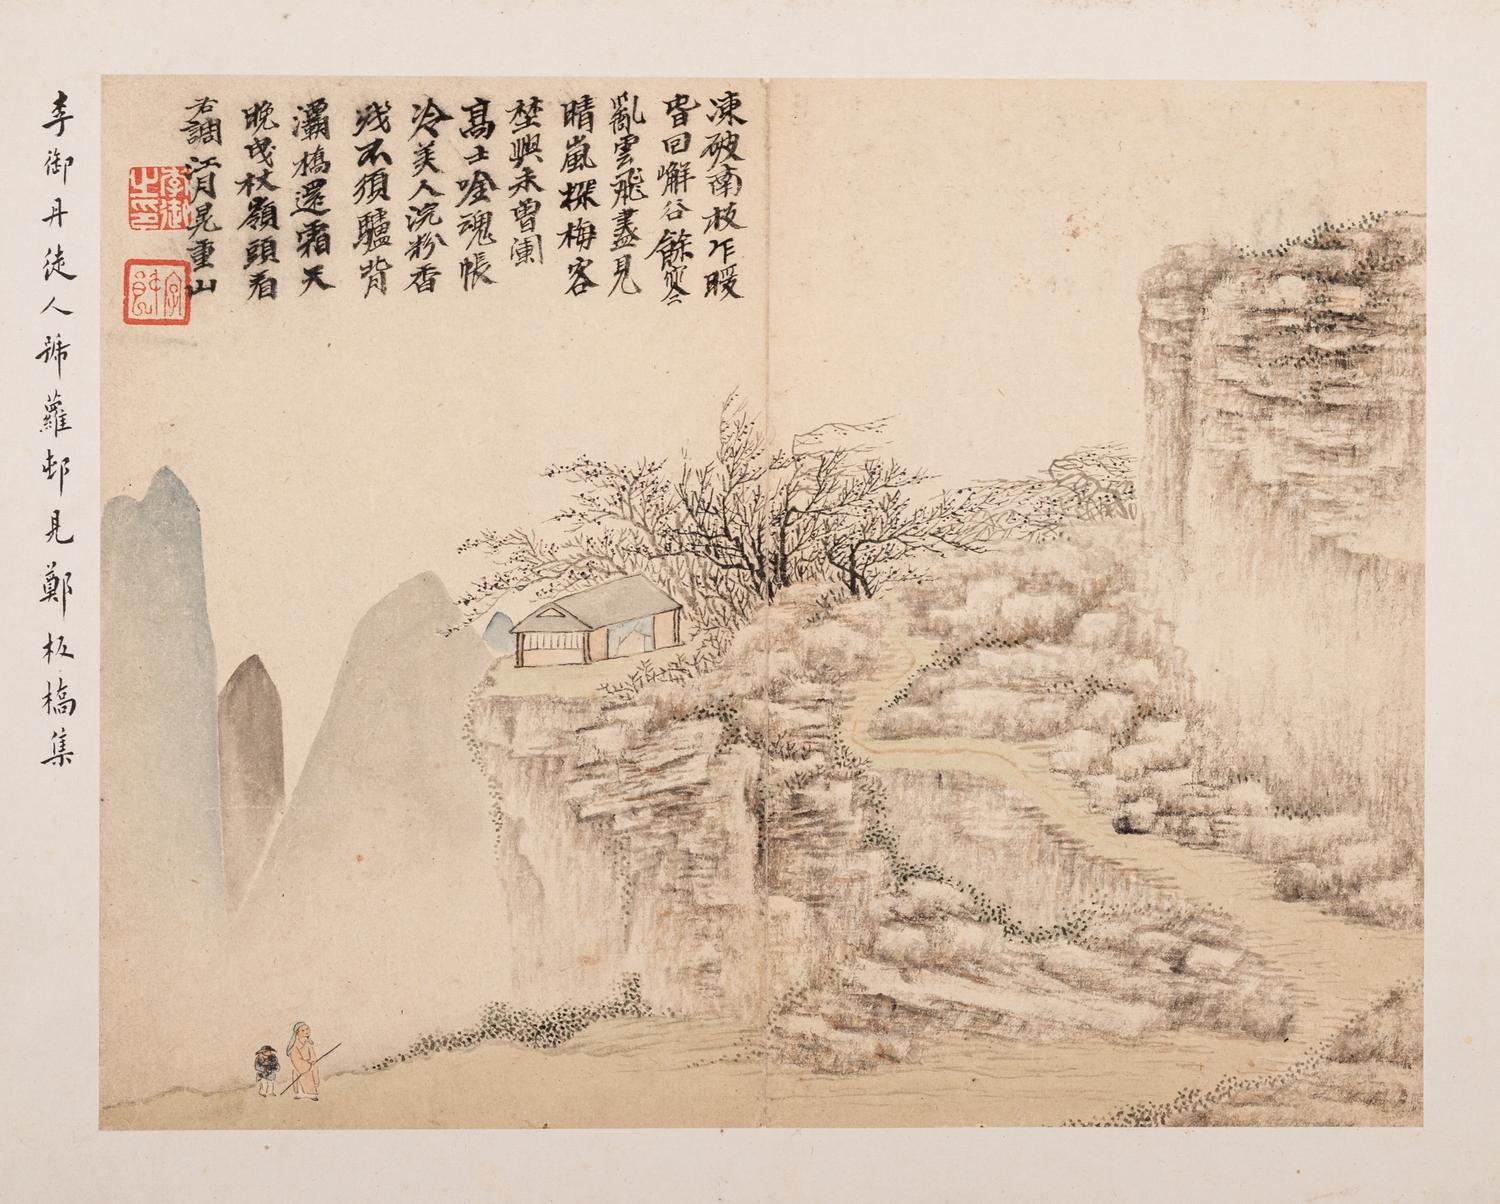 凍破南枝乍暖
昏回嶰谷餘
亂雲飛盡見
晴嵐探梅客
興未曾闌
高士吟魂帳
冷美人浣粉香
殘不須驢背
灞橋還霜天
晚曳杖嶺頭看
右調江月晃重山
李御之印
李御丹徒人號蘿邨見鄭板橋集